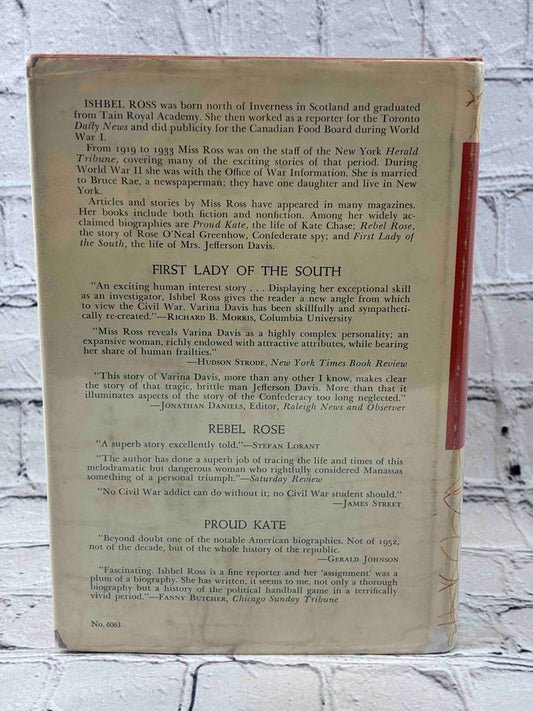 ISHBEL ROSS was born north of Inverness in Scotland and graduated
from Tain Royal Academy. She then worked as a reporter for the Toronto
Daily News and did publicity for the Canadian Food Board during World
War I.
From 1919 to 1933 Miss Ross was on the staff of the New York Herald
Tribune, covering many of the exciting stories of that period. During
World War II she was with the Office of War Information. She is married
to Bruce Rae, a newspaperman; they have one daughter and live in New
York.
Articles and stories by Miss Ross have appeared in many magazines.
Her books include both fiction and nonfiction. Among her widely ac-
claimed biographies are Proud Kate, the life of Kate Chase; Rebel Rose,
the story of Rose O'Neal Greenhow, Confederate spy; and First Lady of
the South, the life of Mrs. Jefferson Davis.
FIRST LADY OF THE SOUTH
"An exciting human interest story . . . Displaying her exceptional skill
as an investigator, Ishbel Ross gives the reader a new angle from which
to view the Civil War. Varina Davis has been skillfully and sympatheti-
cally re-created."—RICHARD B. MORRIS, Columbia University
"Miss Ross reveals Varina Davis as a highly complex personality; an
expansive woman, richly endowed with attractive attributes, while bearing
her share of human frailties."
—HUDSON STRODE, New York Times Book Review
"This story of Varina Davis, more than any other I know, makes clear
the story of that tragic, brittle man Jefferson Davis. More than that it
illuminates aspects of the story of the Confederacy too long neglected."
—JONATHAN DANIELS, Editor, Raleigh News and Observer
REBEL ROSE
"A superb story excellently told."—STEFAN LORANT
"The author has done a superb job of tracing the life and times of this
melodramatic but dangerous woman who rightfully considered Manassas
something of a personal triumph."—Saturday Review
"No Civil War addict can do without it; no Civil War student should."
—JAMES STREET
PROUD KATE
"Beyond doubt one of the notable American biographies. Not of 1952,
not of the decade, but of the whole history of the republic.
—GERALD JOHNSON
"Fascinating. Ishbel Ross is a fine reporter and her 'assignment' was a
plum of a biography. She has written, it seems to me, not only a thorough
biography but a history of the political handball game in a terrifically
vivid period."—FANNY BUTCHER, Chicago Sunday Tribune
No. 6063